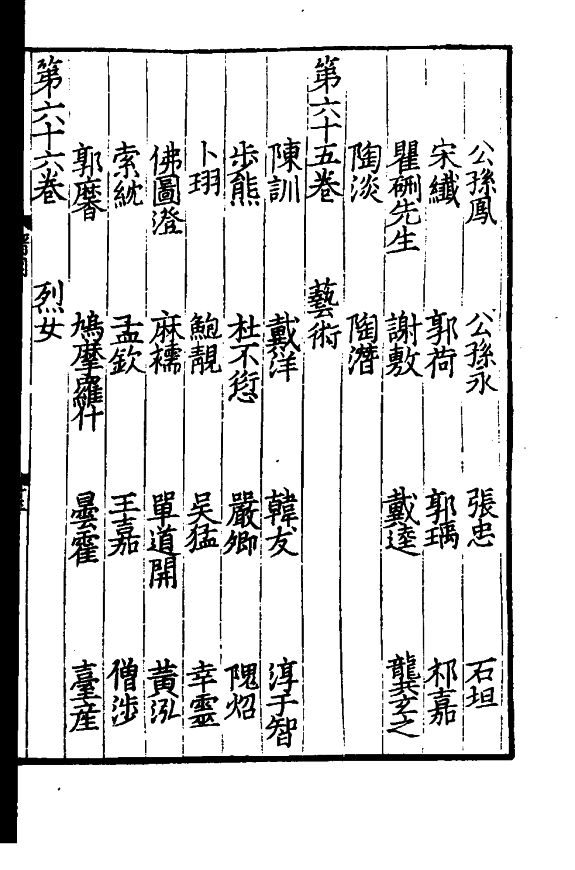 公孫鳳 公孫永 張忠 石坦
宋纖 郭荷 郭瑀 祁嘉
瞿硎先生 謝敷 戴逵 龔玄之
陶淡 陶潛
第六十五卷 藝術
陳訓 戴洋 韓友 淳于智
步熊 杜不愆 嚴卿 隗炤
卜珝 鮑靚 吳猛 幸靈
佛圖澄 麻襦 單道開 黃泓
索紞 孟欽 王嘉 僧涉
郭黁 鳩摩羅什 曇霍 臺産
第六十六卷 烈女